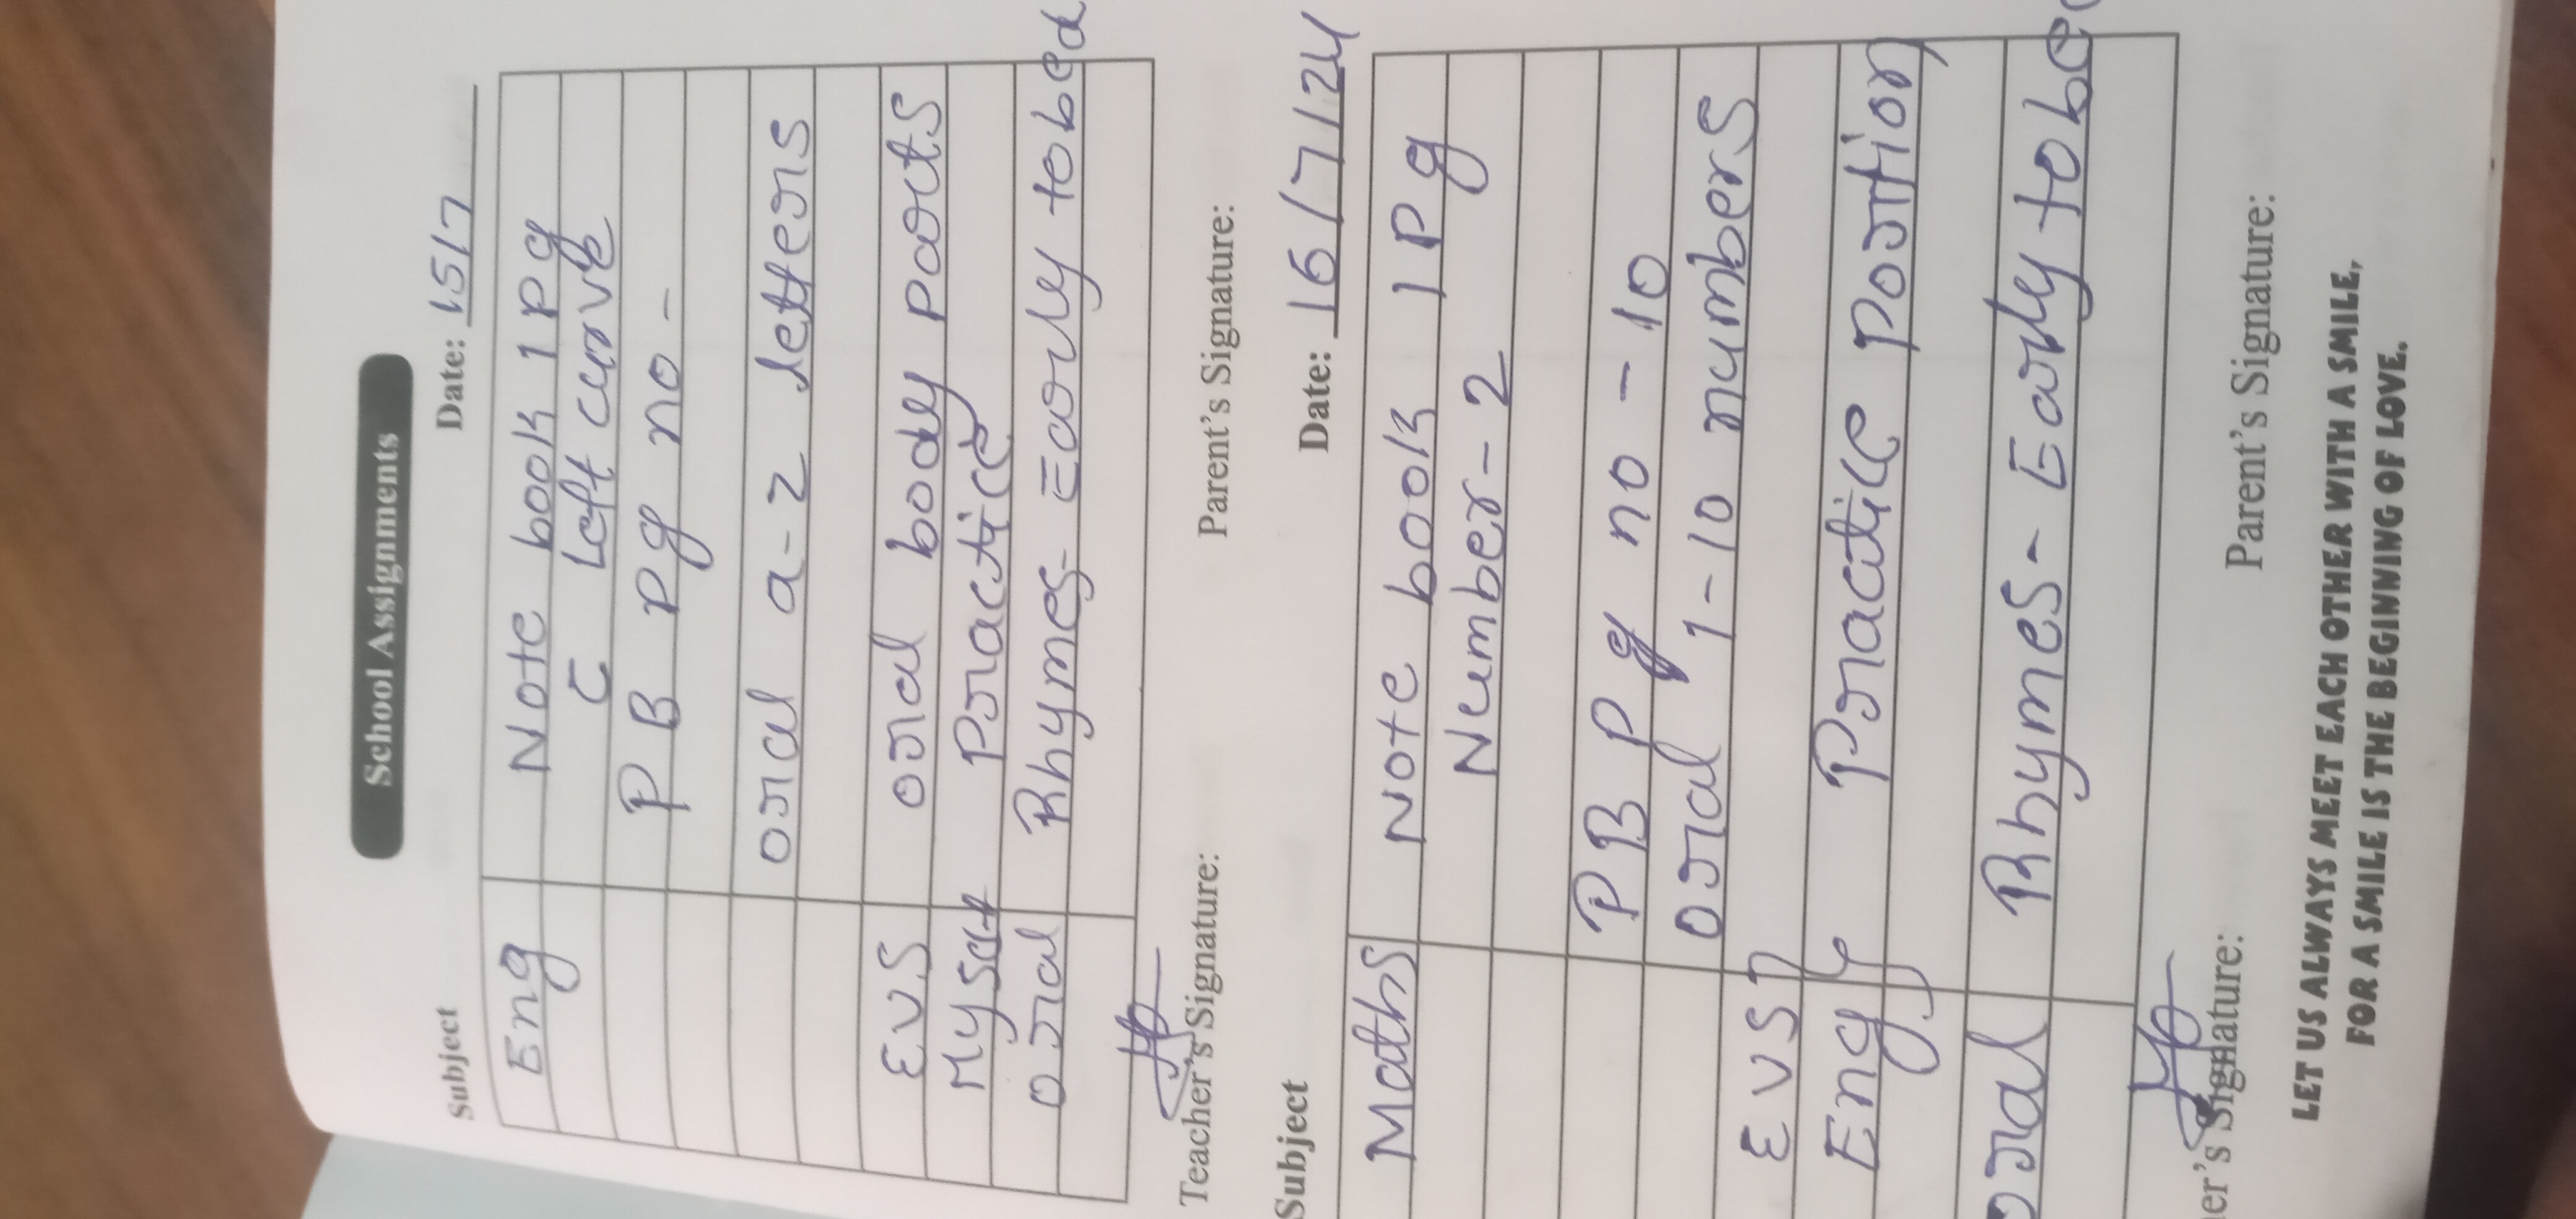 School Assignments
Subject Date: 15/7
Eng Note book 1 Pg
C Left curve
P B Pg no -
oral a-z letters
EVS oral body parts
Myself Practice
oral Rhymes- Early to bed
Teacher's Signature: Parent's Signature:
Subject Date: 16/7/24
Maths Note book 1 Pg
Number-2
P B Pg no - 10
oral 1-10 numbers
EVS
Eng Practice Portion
oral Rhymes- Early to bed
er's Signature: Parent's Signature:
LET US ALWAYS MEET EACH OTHER WITH A SMILE,
FOR A SMILE IS THE BEGINNING OF LOVE.